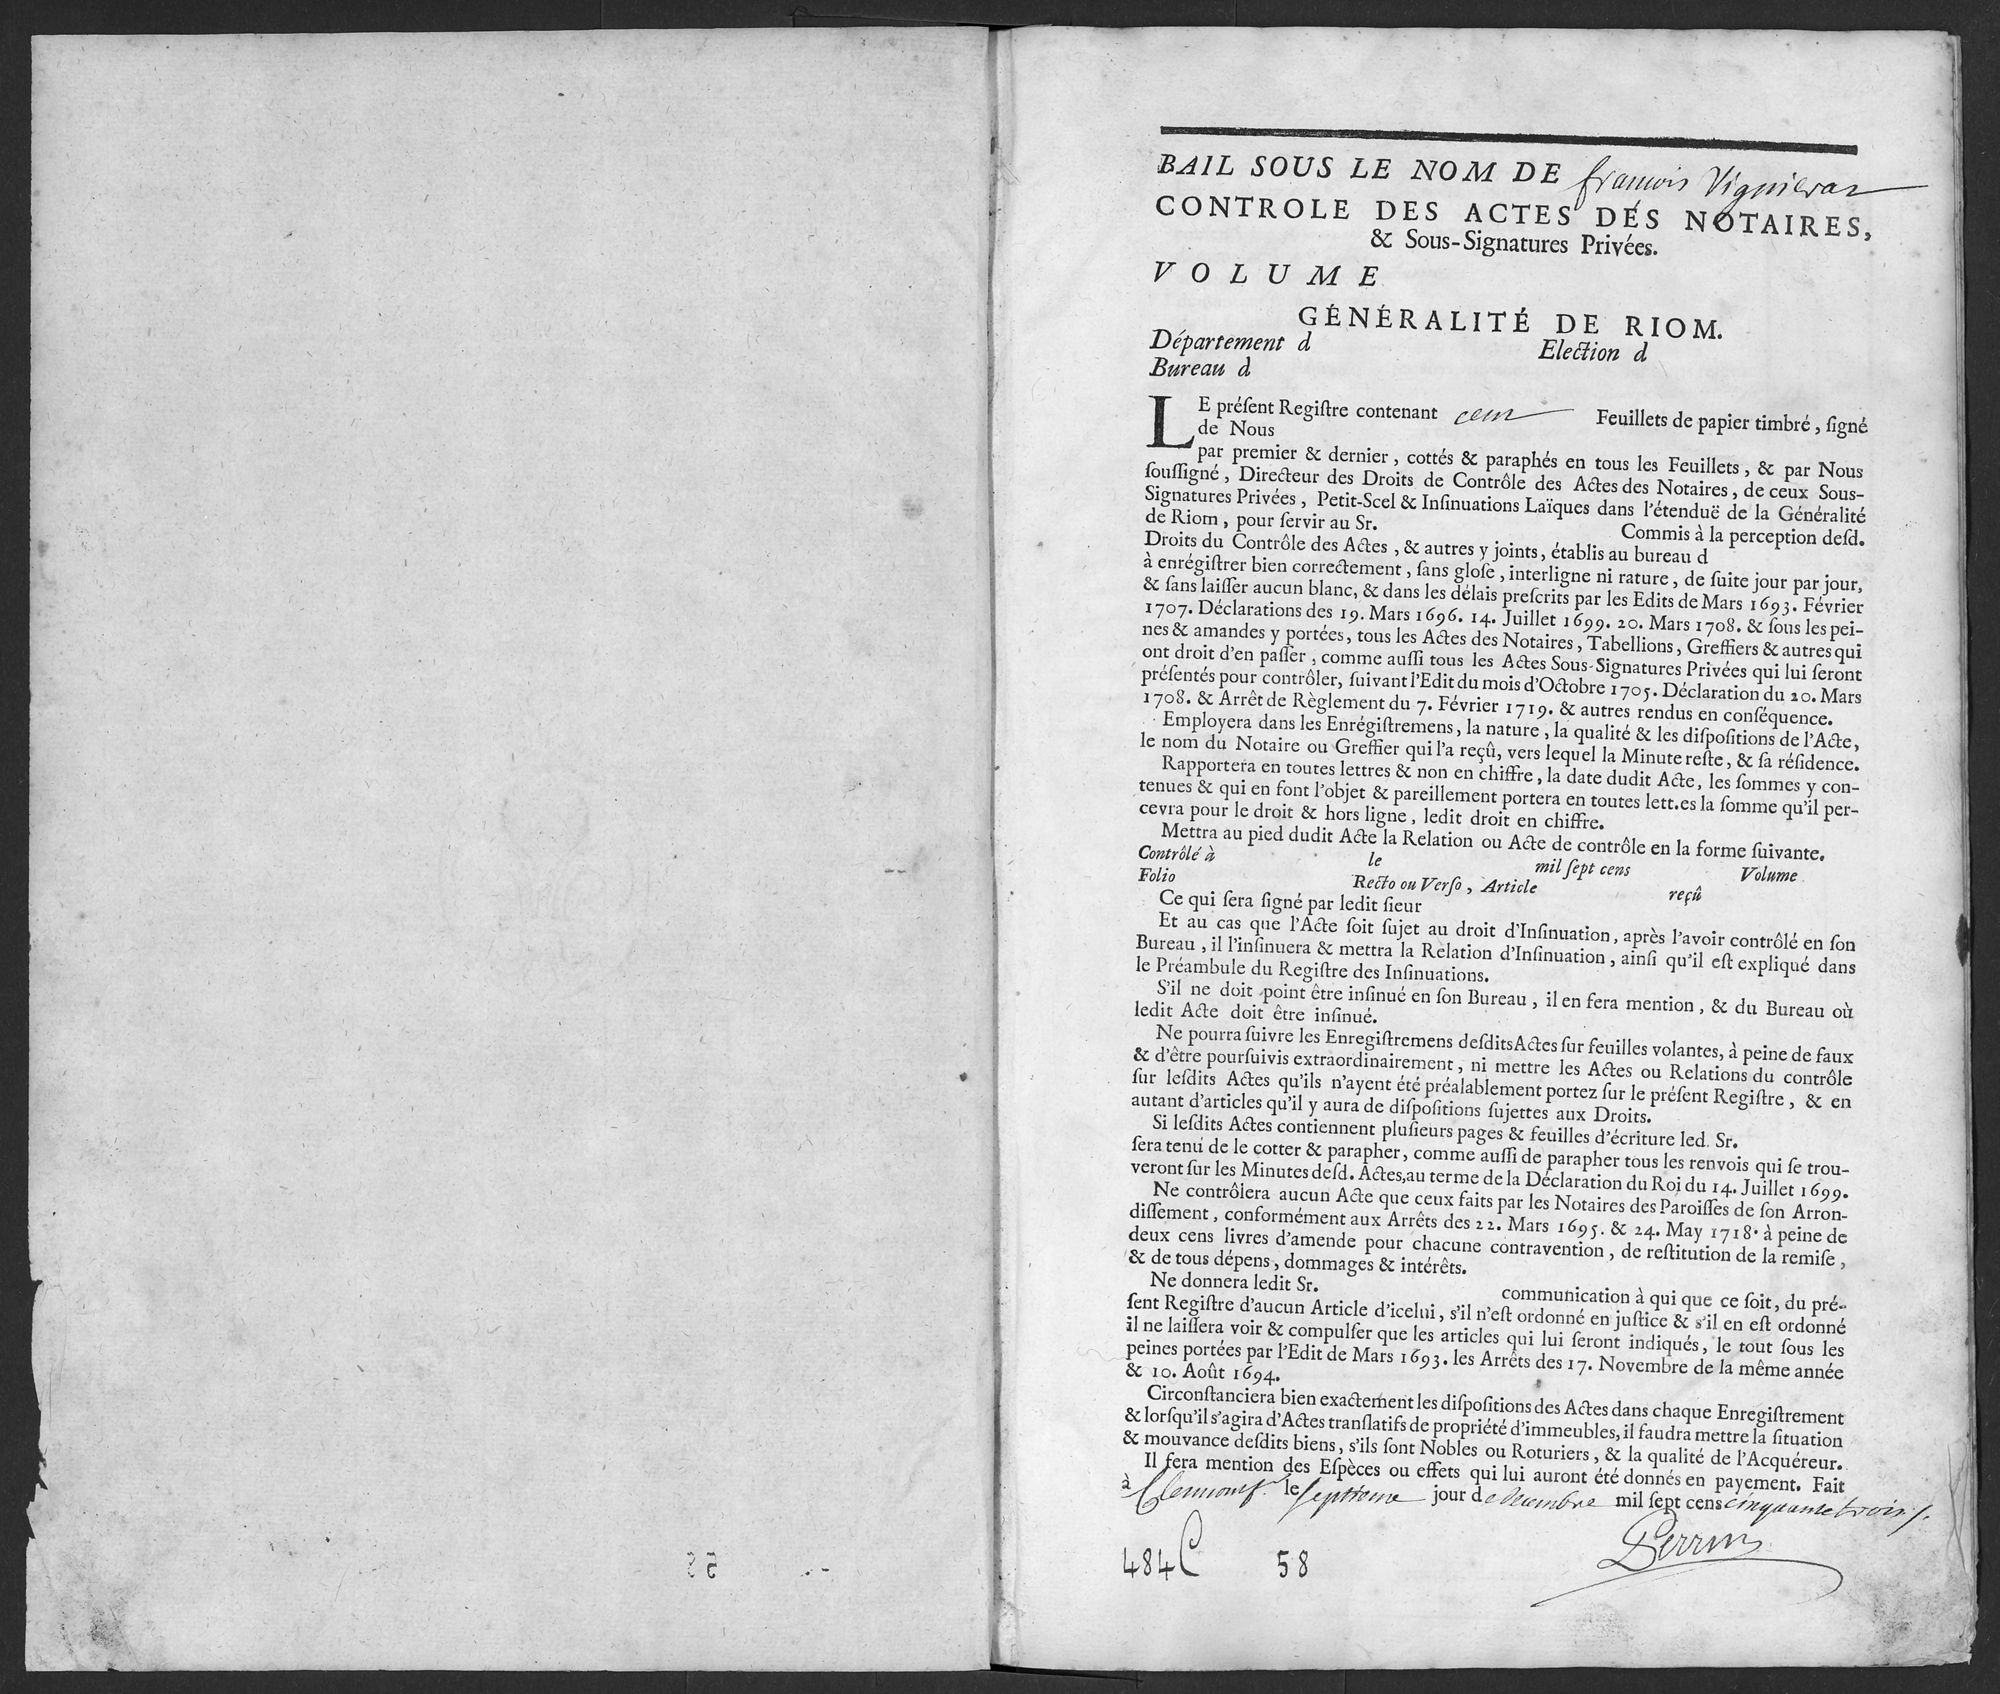 BAIL SOUS LE NOM DE francois Vignieras
CONTROLE DES ACTES DES NOTAIRES,
& Sous-Signatures Privées.
VOLUME
GÉNÉRALITÉ DE RIOM.
Département d Election d
Bureau d
LE préſent Regiſtre contenant cent Feuillets de papier timbré, ſigné
de Nous
par premier & dernier, cottés & paraphés en tous les Feuillets, & par Nous
ſouſſigné, Directeur des Droits de Contrôle des Actes des Notaires, de ceux Sous-
Signatures Privées, Petit-Scel & Inſinuations Laïques dans l'étenduë de la Généralité
de Riom, pour ſervir au Sr. Commis à la perception deſd.
Droits du Contrôle des Actes, & autres y joints, établis au bureau d
à enrégiſtrer bien correctement, ſans gloſe, interligne ni rature, de ſuite jour par jour,
& ſans laiſſer aucun blanc, & dans les délais preſcrits par les Edits de Mars 1693. Février
1707. Déclarations des 19. Mars 1696. 14. Juillet 1699. 20. Mars 1708. & ſous les pei-
nes & amandes y portées, tous les Actes des Notaires, Tabellions, Greffiers & autres qui
ont droit d'en paſſer, comme auſſi tous les Actes Sous-Signatures Privées qui lui ſeront
préſentés pour contrôler, ſuivant l'Edit du mois d'Octobre 1705. Déclaration du 20. Mars
1708. & Arrêt de Règlement du 7. Février 1719. & autres rendus en conſéquence.
Employera dans les Enrégiſtremens, la nature, la qualité & les diſpoſitions de l'Acte,
le nom du Notaire ou Greffier qui l'a reçû, vers lequel la Minute reſte, & ſa réſidence.
Rapportera en toutes lettres & non en chiffre, la date dudit Acte, les ſommes y con-
tenues & qui en font l'objet & pareillement portera en toutes lett.es la ſomme qu'il per-
cevra pour le droit & hors ligne, ledit droit en chiffre.
Mettra au pied dudit Acte la Relation ou Acte de contrôle en la forme ſuivante.
Contrôlé à le mil ſept cens Volume
Folio Recto ou Verſo, Article reçû
Ce qui ſera ſigné par ledit ſieur
Et au cas que l'Acte ſoit ſujet au droit d'Inſinuation, après l'avoir contrôlé en ſon
Bureau, il l'inſinuera & mettra la Relation d'Inſinuation, ainſi qu'il eſt expliqué dans
le Préambule du Regiſtre des Inſinuations.
S'il ne doit point être inſinué en ſon Bureau, il en fera mention, & du Bureau où
ledit Acte doit être inſinué.
Ne pourra ſuivre les Enregiſtremens deſdits Actes ſur feuilles volantes, à peine de faux
& d'être pourſuivis extraordinairement, ni mettre les Actes ou Relations du contrôle
ſur leſdits Actes qu'ils n'ayent été préalablement portez ſur le préſent Regiſtre, & en
autant d'articles qu'il y aura de diſpoſitions ſujettes aux Droits.
Si leſdits Actes contiennent pluſieurs pages & feuilles d'écriture led. Sr.
ſera tenu de le cotter & parapher, comme auſſi de parapher tous les renvois qui ſe trou-
veront ſur les Minutes deſd. Actes, au terme de la Déclaration du Roi du 14. Juillet 1699.
Ne contrôlera aucun Acte que ceux faits par les Notaires des Paroiſſes de ſon Arron-
diſſement, conformément aux Arrêts des 22. Mars 1695. & 24. May 1718. à peine de
deux cens livres d'amende pour chacune contravention, de reſtitution de la remiſe,
& de tous dépens, dommages & intérêts.
Ne donnera ledit Sr. communication à qui que ce ſoit, du pré-
ſent Regiſtre d'aucun Article d'icelui, s'il n'eſt ordonné en juſtice & s'il en eſt ordonné
il ne laiſſera voir & compulſer que les articles qui lui ſeront indiqués, le tout ſous les
peines portées par l'Edit de Mars 1693. les Arrêts des 17. Novembre de la même année
& 10. Août 1694.
Circonſtanciera bien exactement les diſpoſitions des Actes dans chaque Enregiſtrement
& lorſqu'il s'agira d'Actes tranſlatifs de propriété d'immeubles, il faudra mettre la ſituation
& mouvance deſdits biens, s'ils ſont Nobles ou Roturiers, & la qualité de l'Acquéreur.
Il fera mention des Eſpèces ou effets qui lui auront été donnés en payement. Fait
à Clermont le ſeptieme jour de decembre mil ſept cens cinquante trois
Perrin
484 C 58